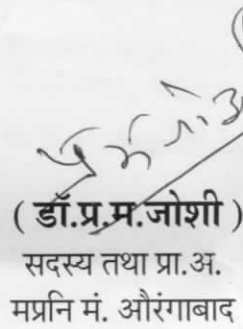 ( डॉ.प्र.म.जोशी )
सदस्य तथा प्रा.अ.
मप्रनि मं. औरंगाबाद